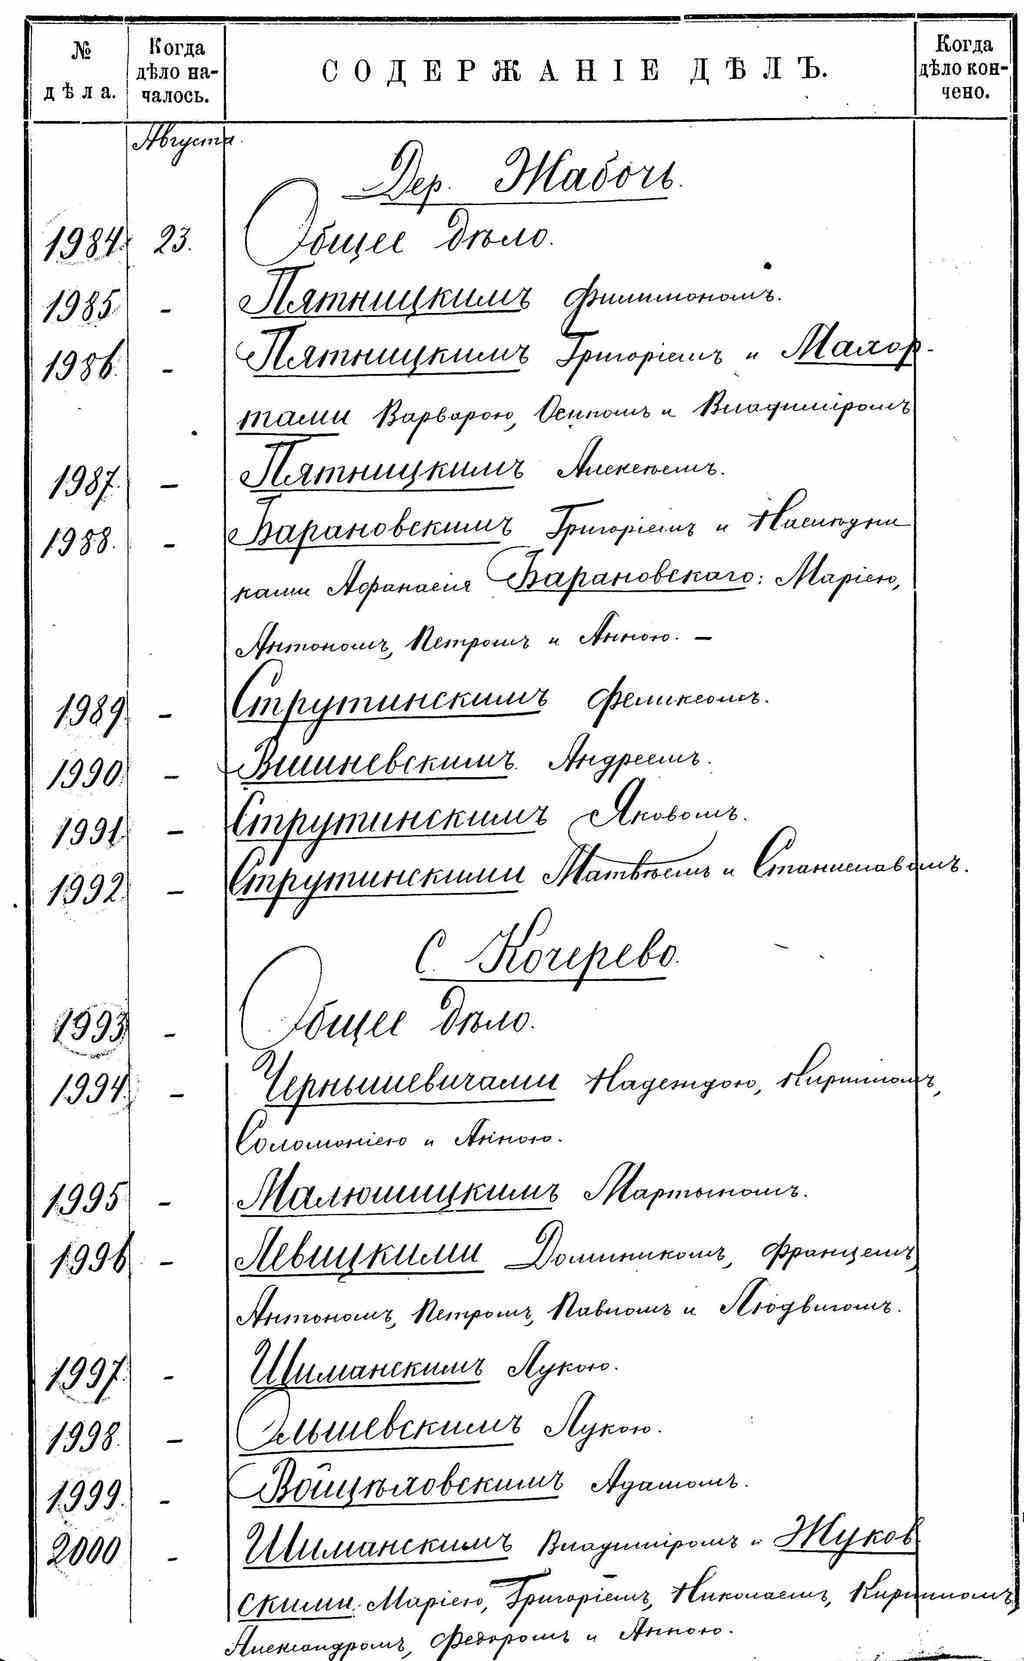 № дѣла.
Когда дѣло началось.
СОДЕРЖАНІЕ ДѢЛЪ.
Когда дѣло кончено.
Августа.
Дер. Жабочь.
1984. 23. Общее дѣло.
1985 - Пятницкимъ Филимономъ.
1986. - Пятницкимъ Григоріемъ и Махор-
тами Варварою, Осипомъ и Владиміромъ
1987. - Пятницкимъ Алексѣемъ.
1988. - Барановскимъ Григоріемъ и Наслѣдни
ками Афанасія Барановскаго: Маріею,
Антономъ, Петромъ и Анною. -
1989. - Струтинскимъ Феликсомъ.
1990. - Вишневскимъ Андреемъ.
1991. - Струтинскимъ Яковомъ.
1992. - Струтинскими Матвѣемъ и Станиславомъ.
С. Кочерево.
1993 - Общее дѣло.
1994. - Чернышевичами Надеждою, Кириломъ,
Соломоніею и Анною.
1995 - Малюшицкимъ Мартыномъ.
1996 - Левицкими Доминикомъ, Францемъ,
Антономъ, Петромъ, Павломъ и Людвигомъ.
1997. - Шиманскимъ Лукою.
1998. - Ольшевскимъ Лукою.
1999. - Войцѣховскимъ Адамомъ.
2000 - Шиманскимъ Владиміромъ и Жуков
скими Маріею, Григоріемъ, Николаемъ, Кириломъ,
Александромъ, Федоромъ и Анною.